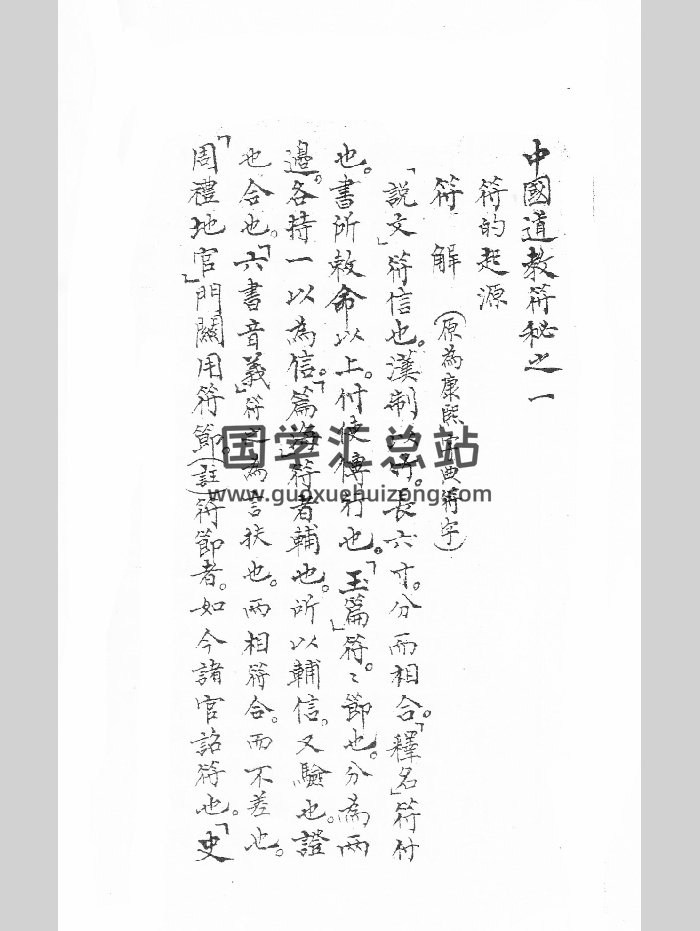 中國道教符秘之一
符的起源
符 解 (原為康熙字典符字)
「説文」符信也。漢制以竹。長六寸。分而相合。「釋名」符付
也。書所敕命以上。付使傳行也。「玉篇」符。〻節也。分為兩
邊。各持一以為信。「篇海」符者輔也。所以輔信。又驗也。證
也合也。「六書音義」符之為言扶也。兩相符合。而不差也。
「周禮地官」門關用符節。(註)符節者。如今諸官詔符也。「史
国学汇总站
www.guoxuehuizong.com